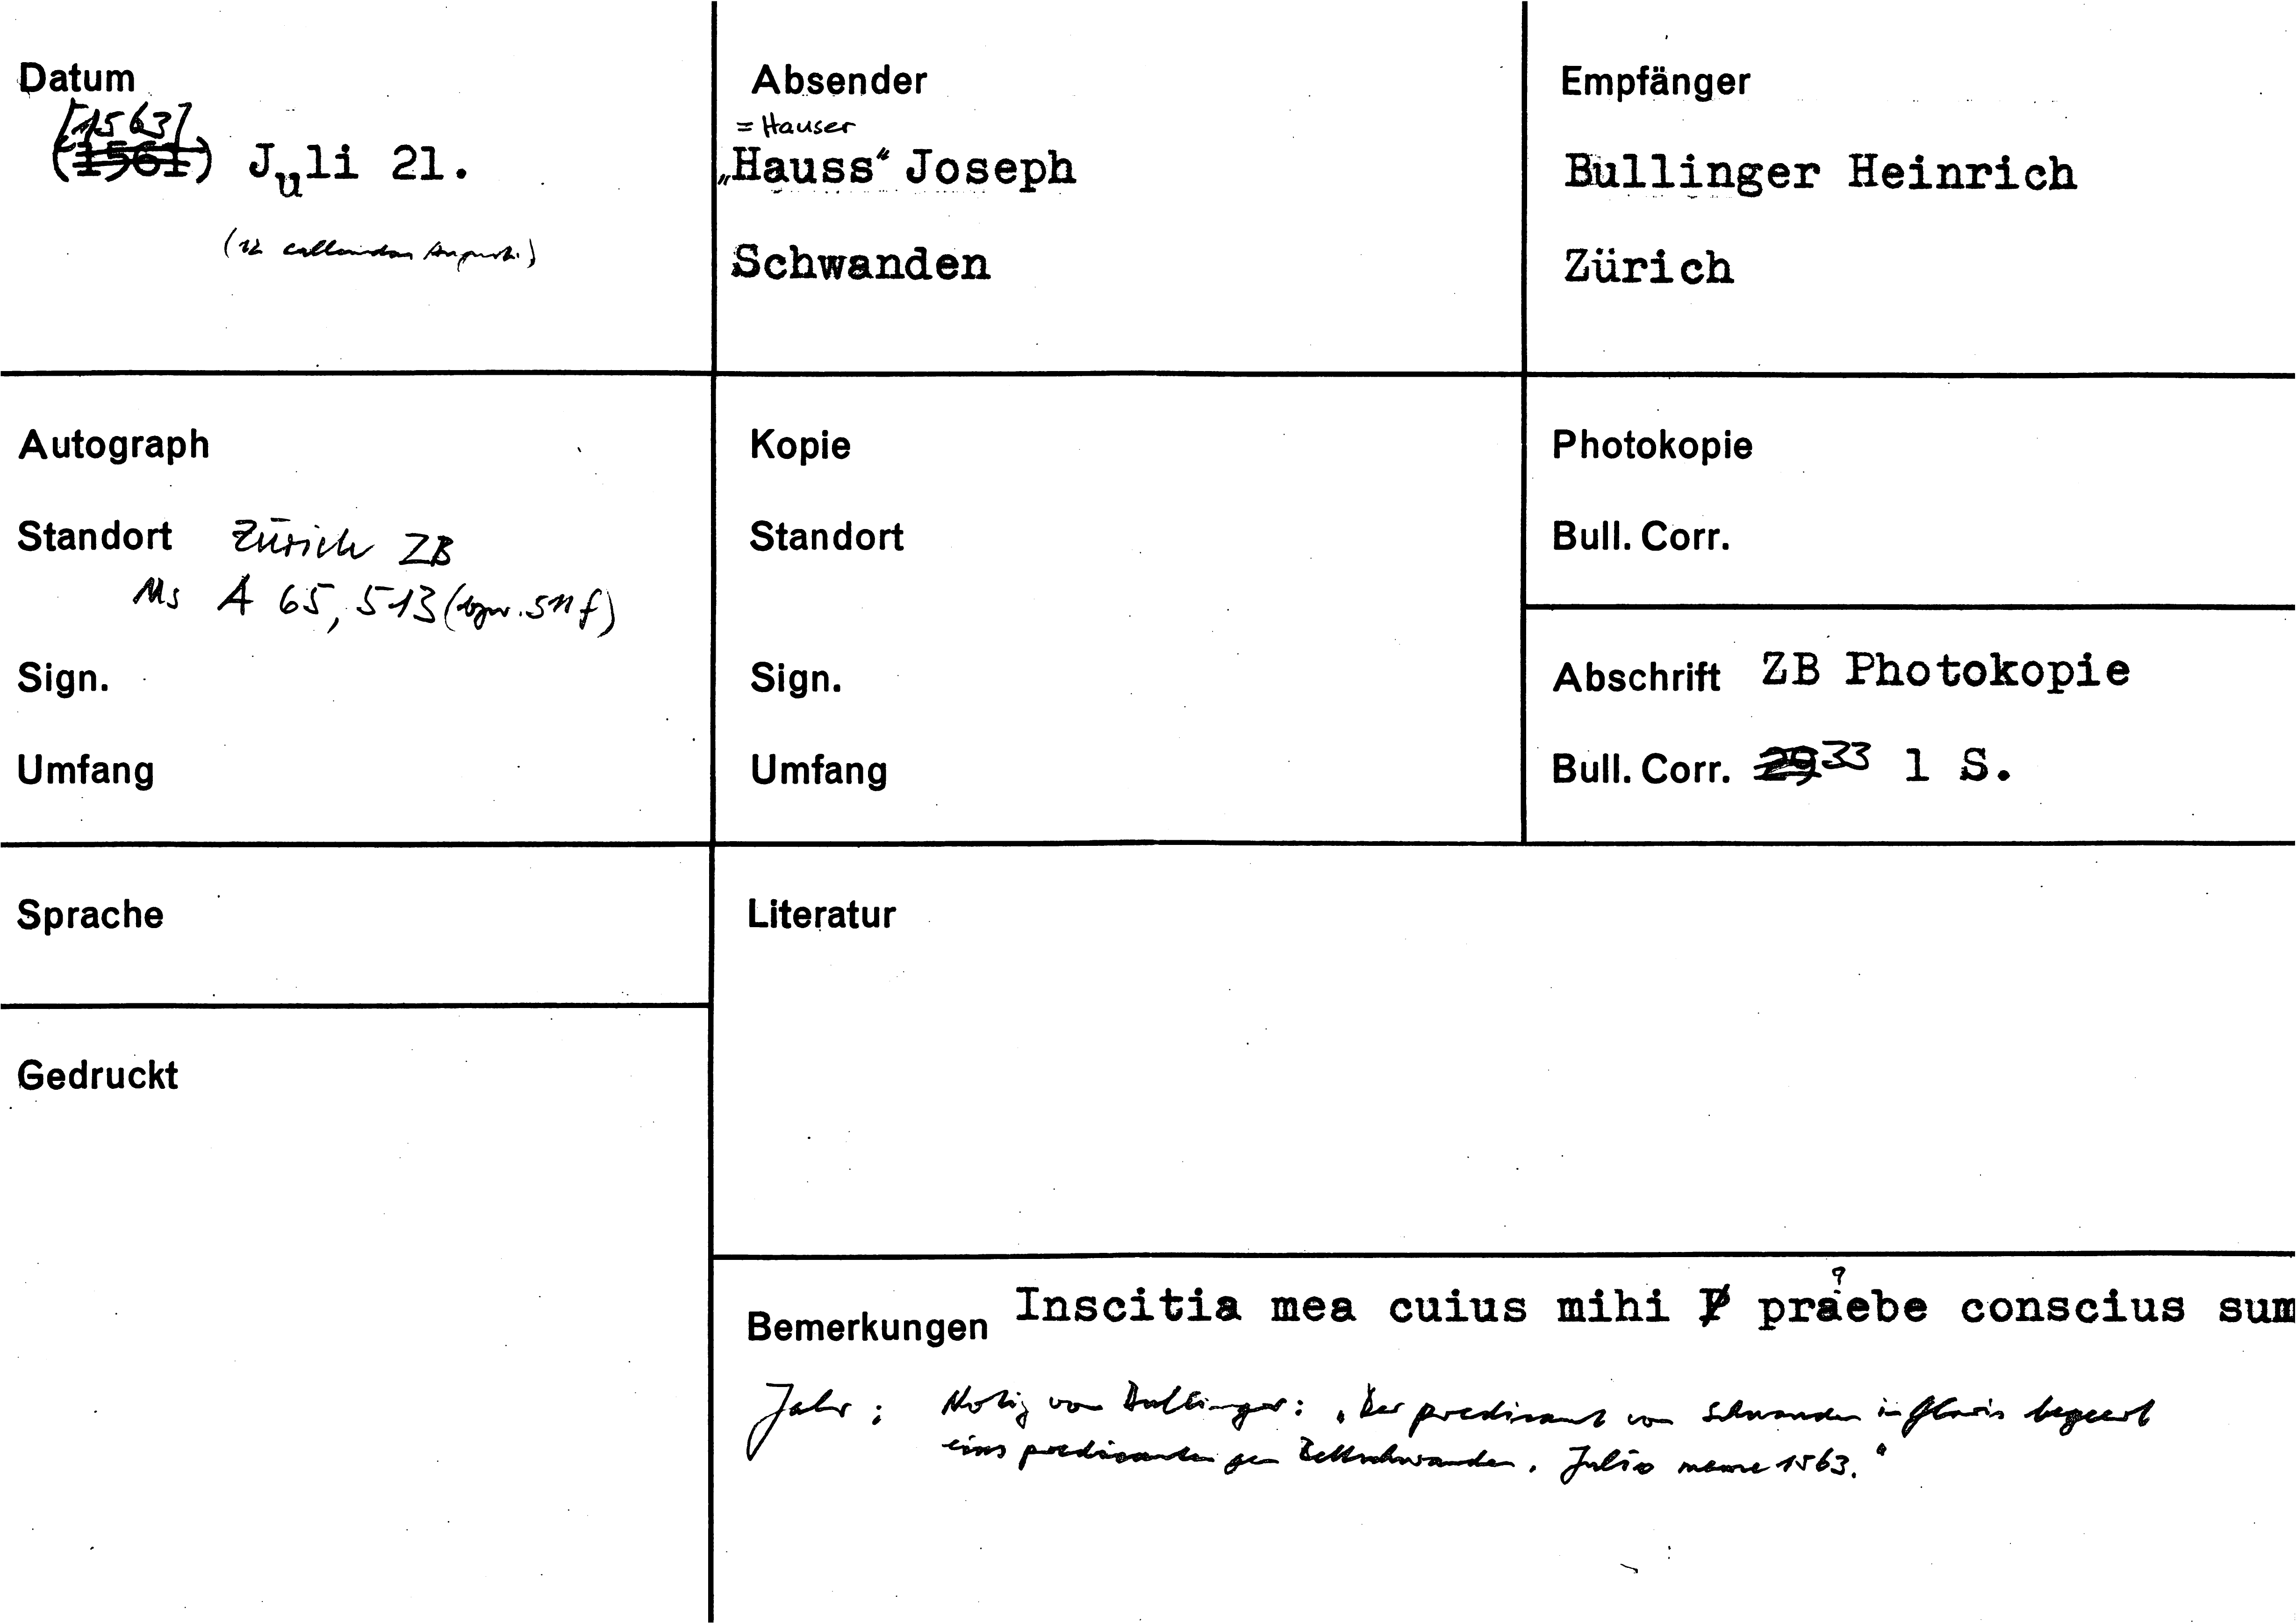 Datum
[1563]
(1561) Juli 21.
(12 callendas August.)
Absender
= Hauser
„Hauss“ Joseph
Schwanden
Empfänger
Bullinger Heinrich
Zürich
Autograph
Standort Zürich ZB
Ms A 65, 513 (bzw. 511 f)
Sign.
Umfang
Kopie
Standort
Sign.
Umfang
Photokopie
Bull. Corr.
Abschrift ZB Photokopie
Bull. Corr. 29 33 1 S.
Sprache
Literatur
Gedruckt
Bemerkungen Inscitia mea cuius mihi P praebe conscius sum
?
Jahr: Notiz von Bullinger: „Der predicant von Schwanden in Glaris begeert
eins predicanten gen Bettschwanden. Julio mense 1563.“